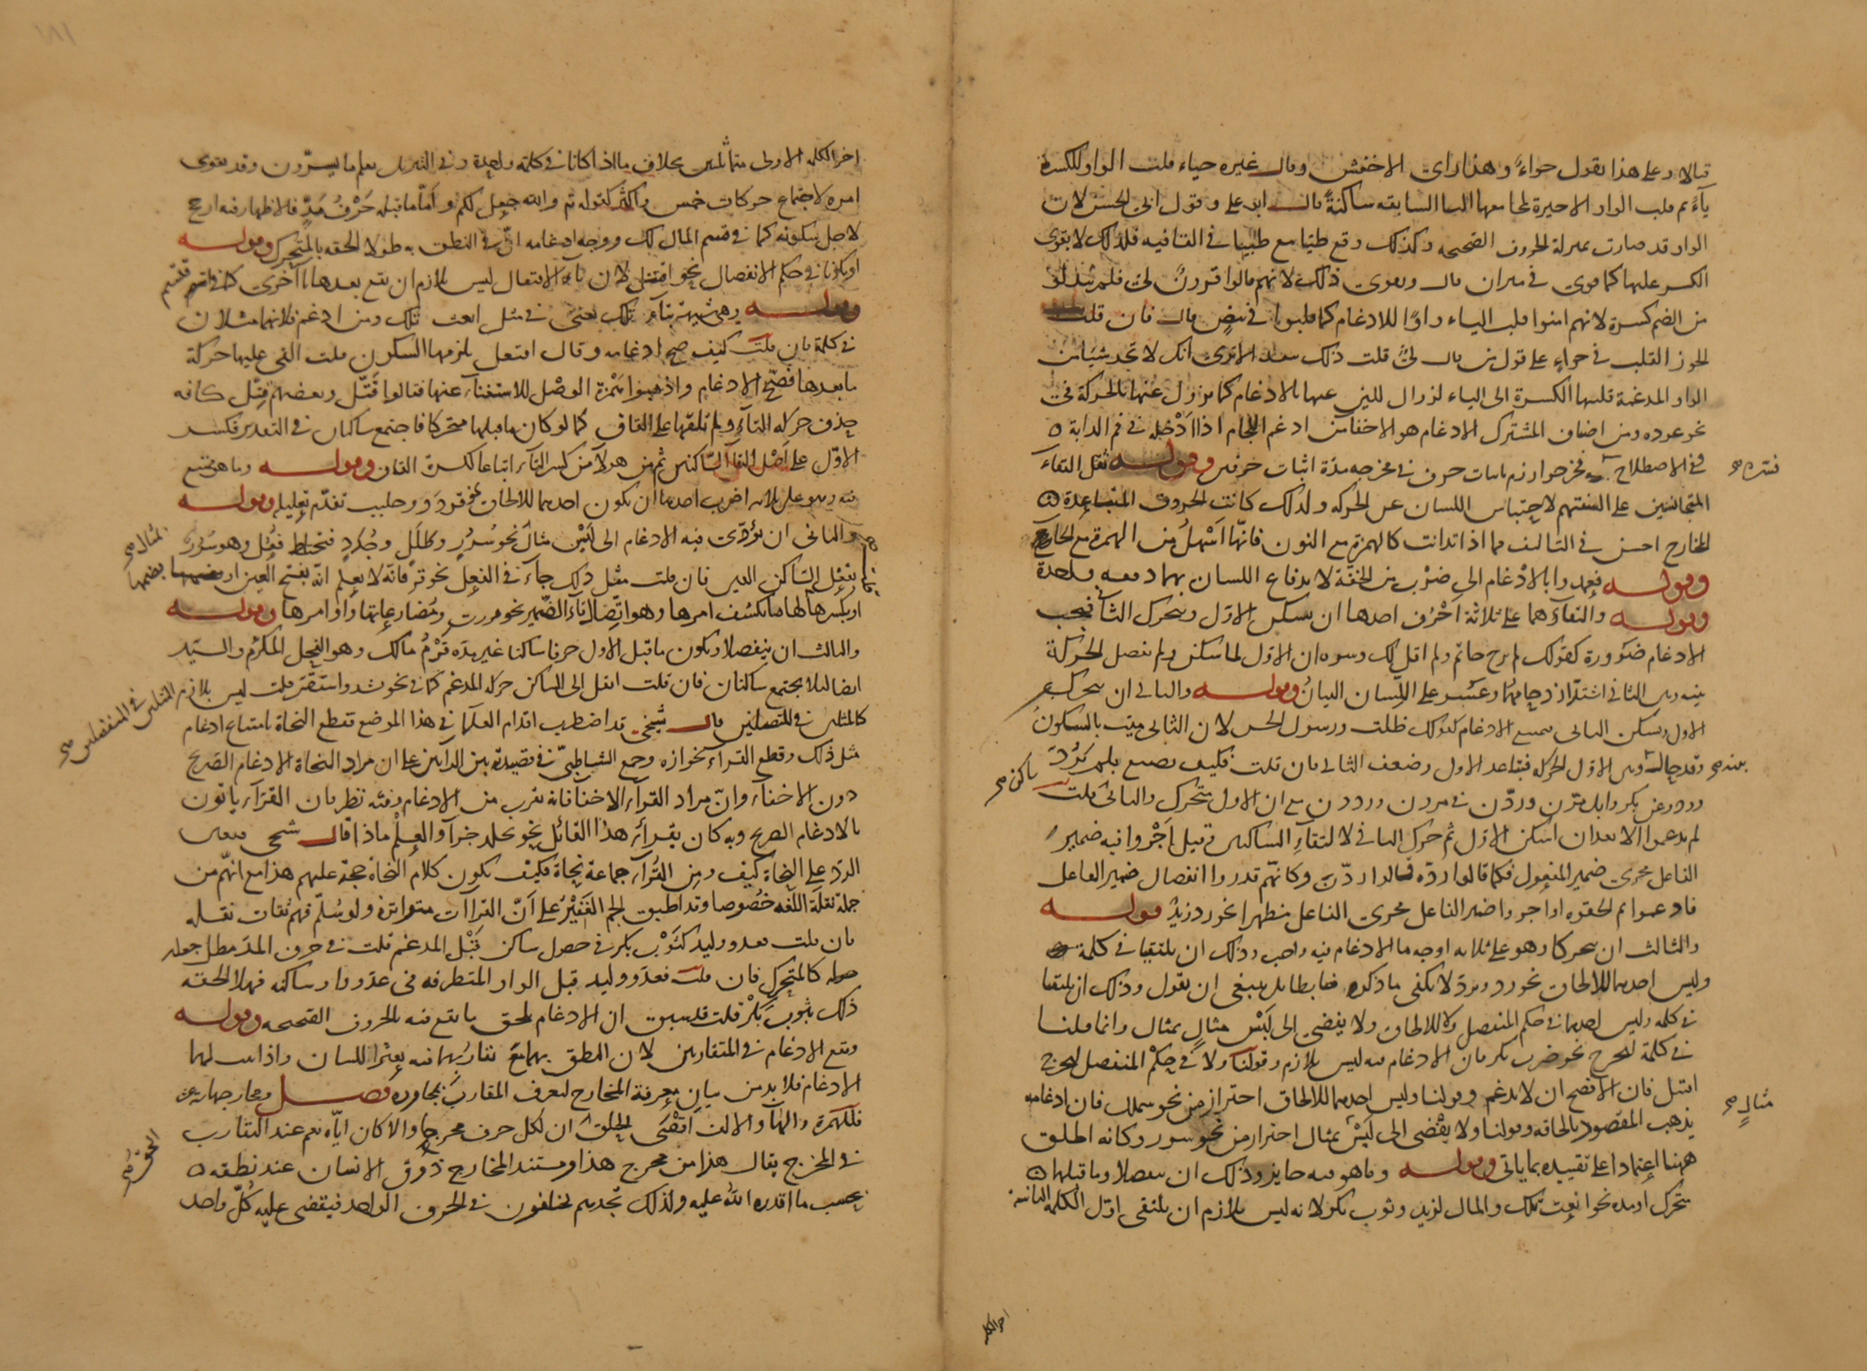 قالا وعلى هذا نقول حواء وهذا راى الاخفش وقال غيره حياء قلبت الواو للكسرة
ياء ثم قلبت الواو الاخيرة لمجامعها اليا السابقه ساكنة قال ابو على وقول ابى الحسن لان
الواو قد صارت بمنزلة الحروف الصحيحه وكذلك وقع طيا مع ظبيا فى القافيه فلذلك لا يقوى
الكسر عليها كما قوى فى ميزان قال ويقوى ذلك لانهم قالوا قرون لى فلم يبدلوا
من الضم كسرة لانهم امنوا قلب الياء واوا للادغام كما قلبوا فى بيض قال فان قلت
القلب فى حواء على قول من قال لى قلت ذلك الاترى انك لا تجد
الواو المدغمة قلبها الكسرة الى الياء لزوال اللين عنها بالادغام كما يزول عنها بالحركة فى
نحو عوده ومن اصناف المشترك الادغام هو الاخفا من ادغم اللجام اذا ادخله فى فم الدابة
فى الاصطلاح اثبات حرف فى مخرجه مدة اثبات حرفين وقوله ثقل التقاء
المتجانسين على السنتهم لاحتباس اللسان عن الحركه ولذلك كانت الحروف المتباعدة
المخارج احسن فى التاليف مما اذا تدانت كالهمزة مع النون فانها اسهل من الهمزة مع الحاء
وقوله فعمدوا بالادغام الى ضرب من الخفة لاندفاع اللسان بهما دفعه واحدة
وقوله والتقاؤهما على ثلاثة اضرب احدها ان يسكن الاول ويتحرك الثانى فيجب
الادغام ضرورة كقولك لم يرح حاتم ولم اقل لك وسره ان الاول لما سكن ولم تفصل الحركة
بينه وبين الثانى اشتد ازدحامهما وعسر على اللسان البيان وقوله والثانى ان يتحرك
الاول ويسكن الثانى فيمتنع الادغام كقولك ظللت ورسول الحسن لان الثانى ميت بالسكون
وقد حالت بين الاول الحركه فتباعد الاول وضعف الثانى فان قلت فكيف تصنع بلم يردد
وردد عن بكر وائل مرن وردن فى مررن ورددن مع ان الاول متحرك والثانى ساكن قلت
لم يدغموا الا بعد ان اسكن الاول ثم حرك الثانى لالتقاء الساكنين وقيل اجروا فيه ضمير
الفاعل مجرى ضمير المفعول فكما قالوا رده قالوا ردن وكانهم قدروا انفصال ضمير الفاعل
فادغموا ثم لحقوه او اجروا ضمير الفاعل مجرى الفاعل مظهرا نحو رد زيد وقوله
والثالث ان يتحركا وهو على ثلاثه اوجه ما الادغام فيه واجب وذلك ان يلتقيا فى كلمة
وليس احدهما للالحاق نحو رد يرد لا يكفى ما ذكره ضابطا بل ينبغى ان تقول وذلك ان يلتقيا
فى كلمه وليس احدهما فى حكم المنفصل ولا للالحاق ولا يفضى الى لبس مثال بمثال وانما قلنا
فى كلمة ليخرج نحو ضرب بكر فان الادغام فيه ليس بلازم وقولنا ولا فى حكم المنفصل ليخرج
اقتتل فان الافصح ان لا يدغم وقولنا وليس احدهما للالحاق احتراز من نحو شملل فان ادغامه
يذهب المقصود بالحاقه وقولنا ولا يفضى الى لبس بمثال احتراز من نحو سرر وكانه اطلق
ههنا اعتمادا على تقييده بما ياتى وقوله وما هو فيه جايز وذلك ان ينفصلا وما قبلها
متحرك او مده نحو انعت تلك والمال لزيد وثوب بكر لانه ليس بلازم ان يلتقى اول الكلمة الثانية
اخر الكلم
اخر الكلمه الاولى متماثلين بخلاف ما اذا كانا فى كلمة واحدة وفى التنزيل يعلم ما يسرون وقد يقوى
امره لاجتماع حركات خمس واكثر كقوله تم والله جعل لكم واما ما قبله حرف مد فالاظهار فيه ارجح
لاجل سكونه كما فى قسم المال لك ووجه ادغامه ان فى النطق به طولا الحقه بالمتحرك وقوله
او يكونا فى حكم الانفصال نحو اقتتل لان تاء الافتعال ليس بلازم ان يقع بعدها تا اخرى كما فى اقتسم
وقوله وهى شبيهة بتاء تلك يعنى فى مثل انعت تلك ومن ادغم فلانهما مثلان
فى كلمة فان قلت كيف صح ادغامه وقاف افتعل يلزمها السكون قلت القى عليها حركة
ما بعدها فصح الادغام واذهبوا همزة الوصل للاستغناء عنها فقالوا قتل وبعضهم قتل كانه
حذف حركه التاء ولم يلقها على القاف كما لو كان ما قبلها متحركا فاجتمع ساكنان فى التقدير فكسر
الاول على اصل التقا الساكنين ثم من هولاء من كسر التاء اتباعا لكسرة القاف وقوله وما هو ممتنع
فيه وهو على ثلاثه اضرب احدها ان يكون احدهما للالحاق نحو قردد وجلبب تقدم تعليله وقوله
والثانى ان يؤدى فيه الادغام الى لبس مثال نحو سرر وطلل وجدد فيختلط فعل وهو سرر
بفعل الساكن العين فان قلت مثل ذلك جاء فى الفعل نحو فر فانه لا يعلم انه بفتح العين او بضمها
او بكسرها لها ما يكشف امرها وهو اتصال تاء الضمير نحو مررت ومضارعاتها واوامرها وقوله
والثالث ان ينفصلا ويكون ما قبل الاول حرفا ساكنا غير مده قرم مالك وهو الفحل المكرم والسيد
ايضا لئلا يجتمع ساكنان فان قلت انقل الى الساكن حركه المدغم كما فى نحو شد واستقر قلت ليس بلازم المثلين فى المنفصلين
كالمثلين فى المتصلين قال شيخى قد اضطرب اقدام العلما فى هذا الموضع تقطع النحاة بامتناع ادغام
مثل ذلك وقطع القراء بجوازه وجمع الشاطبى فى قصيدة بين الراىين على ان مراد النحاة الادغام الصريح
دون الاخفاء وان مراد القراء الاخفا فانه يقرب من الادغام وفيه نظر فان القراء ياتون
بالادغام الصريح وبه كان يقرا هذا القائل نحو الخلد جزاء والعلم ماذا قال شيخى فينبغى
الرد على النحاة كيف ومن القراء جماعة نحاة فكيف يكون كلام النحاة حجة عليهم هذا مع انهم من
جملة نقلة اللغه خصوصا وقد اطبق الجم الغفير على ان القراات متواترة ولو سلم فهم ثقات نقله
فان قلت فعدو وليد كثوب بكر فى حصول ساكن قبل المدغم قلت فى حرف المد مطل جعله
كالمتحرك فان قلت فعدو وليد قبل الواو المتطرفه فى عدو واو ساكنه فهلا الحقه
ذلك بثوب بكر قلت قد سبق ان الادغام يلحق ما يقع فيه بالحروف الصحيحه وقوله
ويقع الادغام فى المتقاربين لان النطق بهما مع تقاربهما فيه يعثر اللسان واذا ثبت لهما
الادغام فلا بد من بيان معرفة المخارج لتعرف المقارب بمجاوره فصل ومخارجها ستة عشر
فللهمزة والها والالف اقصى الحلق ان لكل حرف مخرجا والا كان اياه نعم عند التقارب
فى المخرج يقال هذا من مخرج هذا ومستند المخارج ذوق الانسان عند نطقه
بحسب ما اقدره الله عليه ولذلك تجدهم يختلفون فى الحروف الواحد فيقضى عليه كل واحد